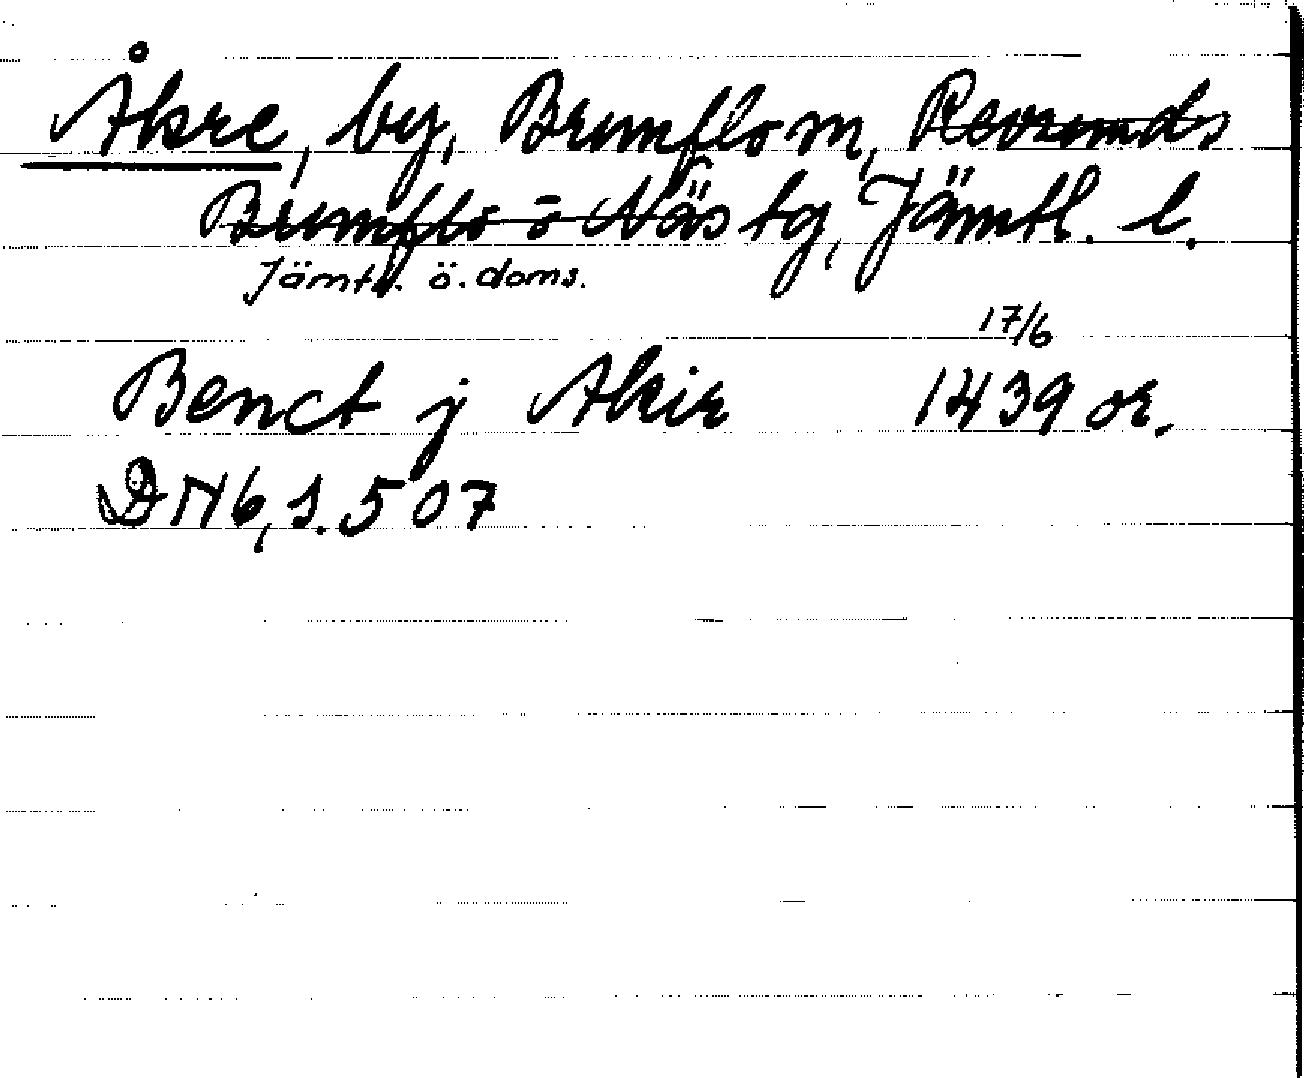 Åkre, by, Brunflo sn, Revsunds
Brunflo o Näs tg, Jämtl. l.
Jämtl. ö. doms.
17/6
Benct j Akir 1439 or.
DN 16, s. 507